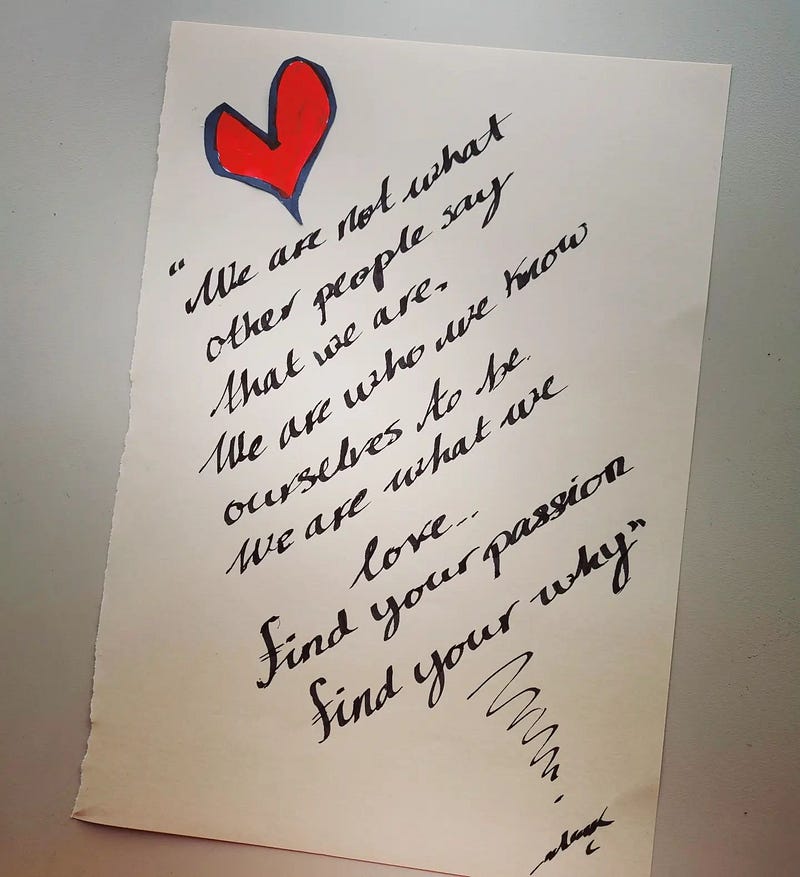 “We are not what
other people say
that we are.
We are who we know
ourselves to be.
We are what we
love...
find your passion
find your why”